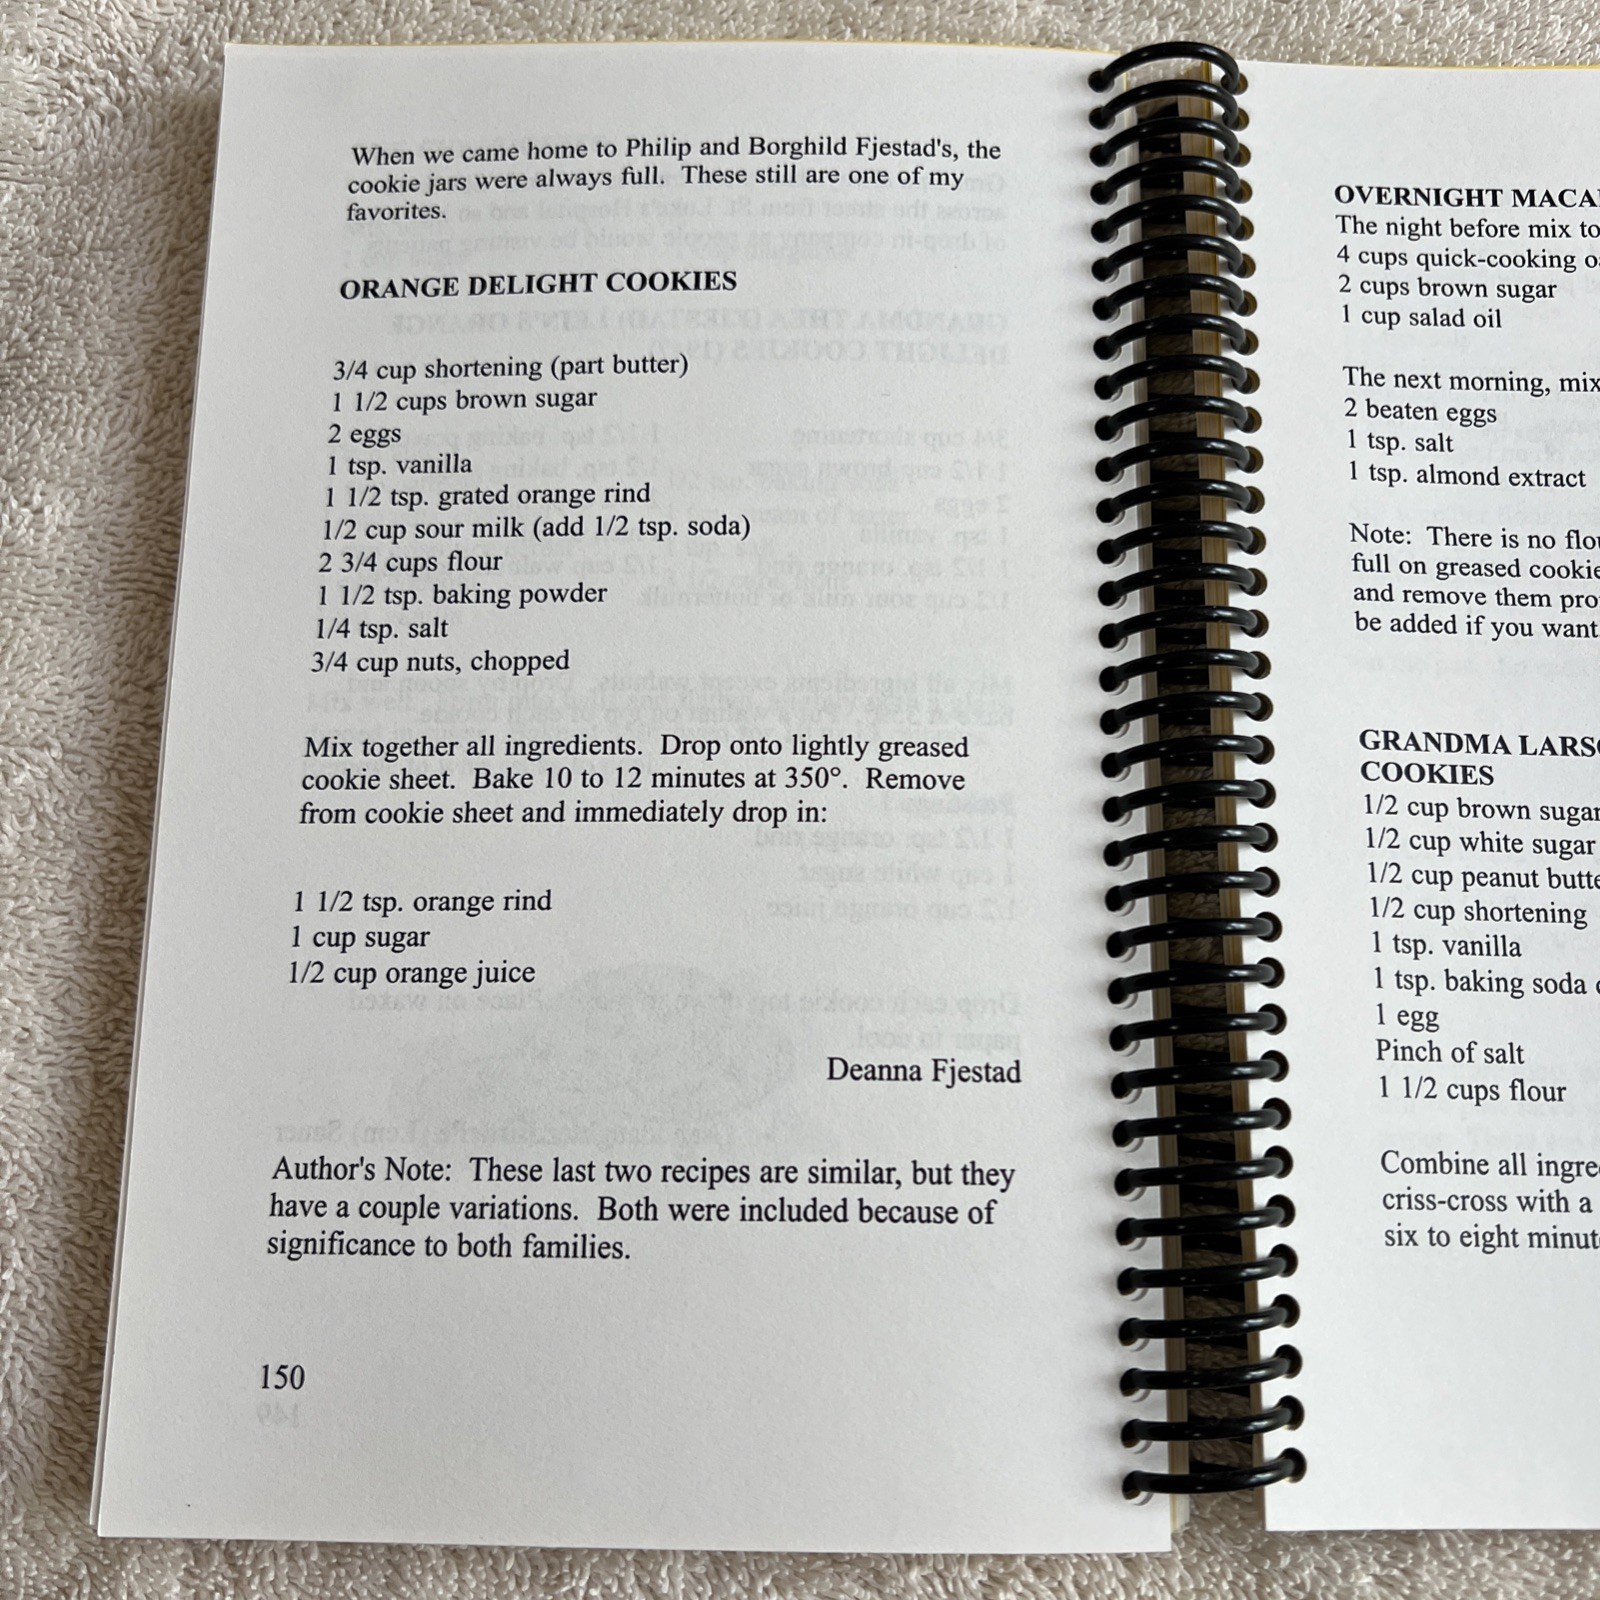 When we came home to Philip and Borghild Fjestad's, the
cookie jars were always full.  These still are one of my
favorites.
ORANGE DELIGHT COOKIES
3/4 cup shortening (part butter)
1 1/2 cups brown sugar
2 eggs
1 tsp. vanilla
1 1/2 tsp. grated orange rind
1/2 cup sour milk (add 1/2 tsp. soda)
2 3/4 cups flour
1 1/2 tsp. baking powder
1/4 tsp. salt
3/4 cup nuts, chopped
Mix together all ingredients.  Drop onto lightly greased
cookie sheet.  Bake 10 to 12 minutes at 350°.  Remove
from cookie sheet and immediately drop in:
1 1/2 tsp. orange rind
1 cup sugar
1/2 cup orange juice
Deanna Fjestad
Author's Note:  These last two recipes are similar, but they
have a couple variations.  Both were included because of
significance to both families.
150
OVERNIGHT
The night before mix
4 cups quick-cooking
2 cups brown sugar
1 cup salad oil
The next morning, mix
2 beaten eggs
1 tsp. salt
1 tsp. almond extract
Note:  There is no
full on greased
and remove them
be added if you want
GRANDMA
COOKIES
1/2 cup brown sugar
1/2 cup white sugar
1/2 cup peanut
1/2 cup shortening
1 tsp. vanilla
1 tsp. baking soda
1 egg
Pinch of salt
1 1/2 cups flour
Combine all
criss-cross with a
six to eight